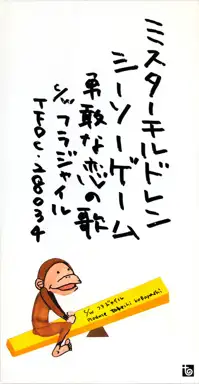 ミスターチルドレン
シーソーゲーム
勇敢な恋の歌
c/w フラジャイル
TFDC・28034
c/w フラジャイル
Produce Takeshi Kobayashi